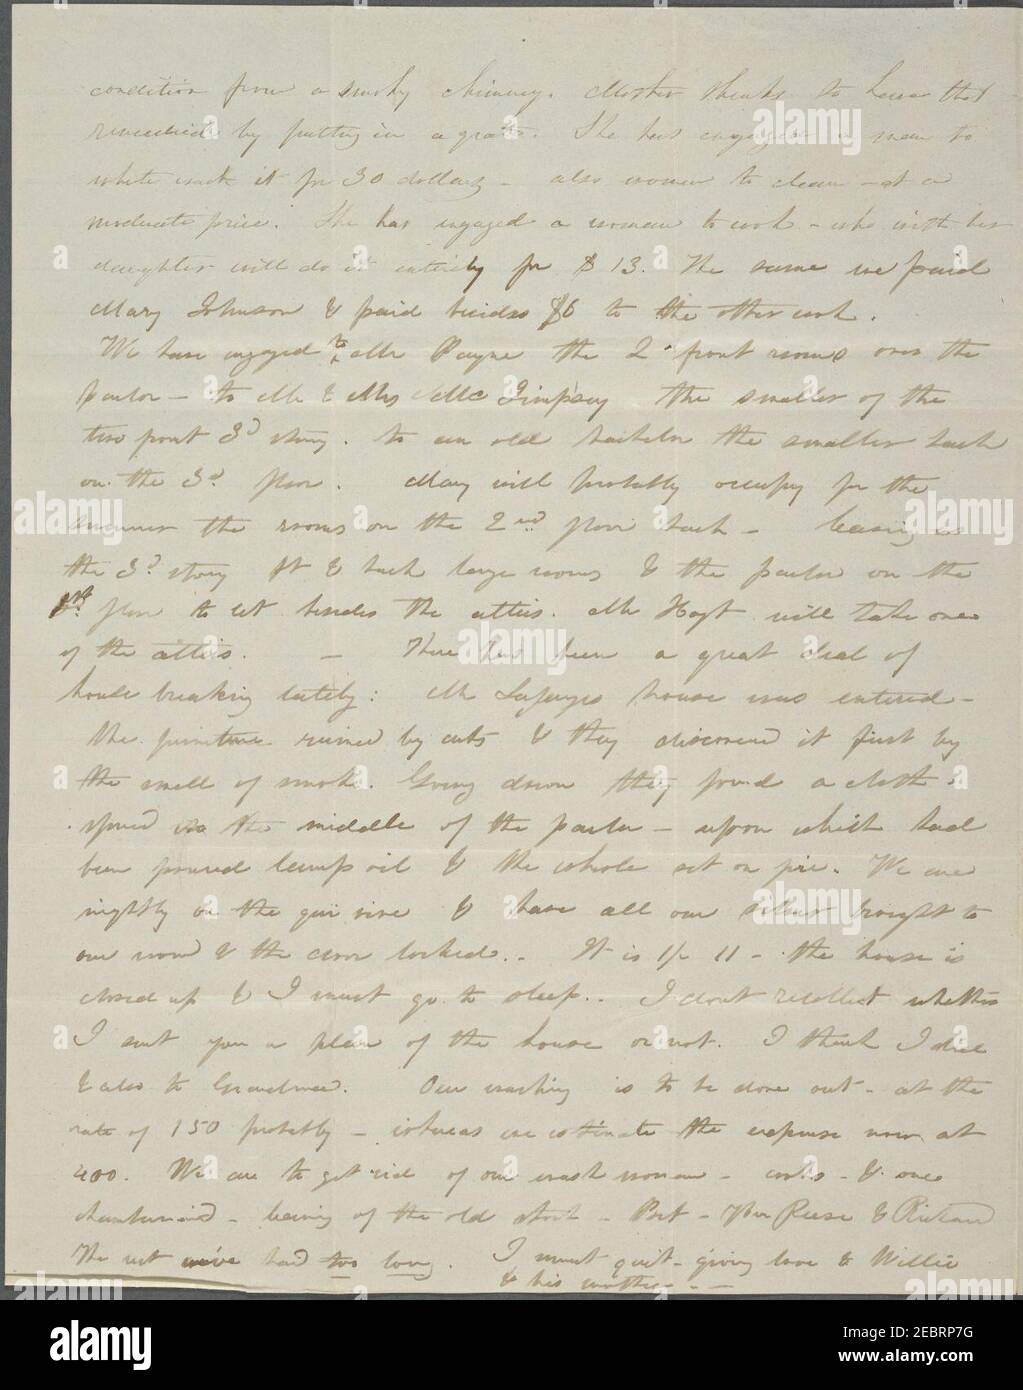 condition from a smoky chimney. Mother thinks to have that
remedied by putting in a grate. She has engaged a man to
white wash it for 30 dollars - also women to clean - at a
moderate price. She has engaged a woman to cook - who with her
daughter will do it entirely for $13. The same we paid
Mary Johnson & paid besides $6 to the other cook.
We have engaged to Mr Payne the 2 front rooms over the
parlor - to Mr & Mrs the smaller of the
two front 3d story. to an old bachelor the smaller back
on the 3d floor. Mary will probably occupy for the
summer the rooms on the 2nd floor back - leaving us
the 3d story ft & back large rooms & the parlor on the
1st floor to let besides the attics. Mr Hoyt will take one
of the attics. - There has been a great deal of
house breaking lately: Mr house was entered -
the furniture ruined by cuts & they discovered it first by
the smell of smoke. Going down they found a cloth
spread in the middle of the parlor - upon which had
been poured lamp oil & the whole set on fire. We are
nightly on the qui vive & have all our silver brought to
our room & the door locked.. It is 1/2 11 - the house is
closed up & I must go to sleep.. I dont recollect whether
I sent you a plan of the house or not. I think I did
& also to Grandma. Our washing is to be done out - at the
rate of 150 probably - whereas we estimate the expense now at
400. We are to get rid of our wash woman - cooks - & one
chambermaid - leaving of the old stock - & Richard
The rest we've had too long. I must quit - giving love to Willie
& his mother - -
alamy
Image ID: 2EBRP7G
www.alamy.com